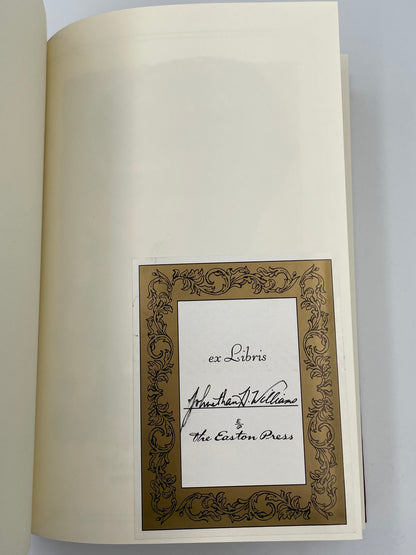 ex Libris
Johnathan D. Williams
&
The Easton Press